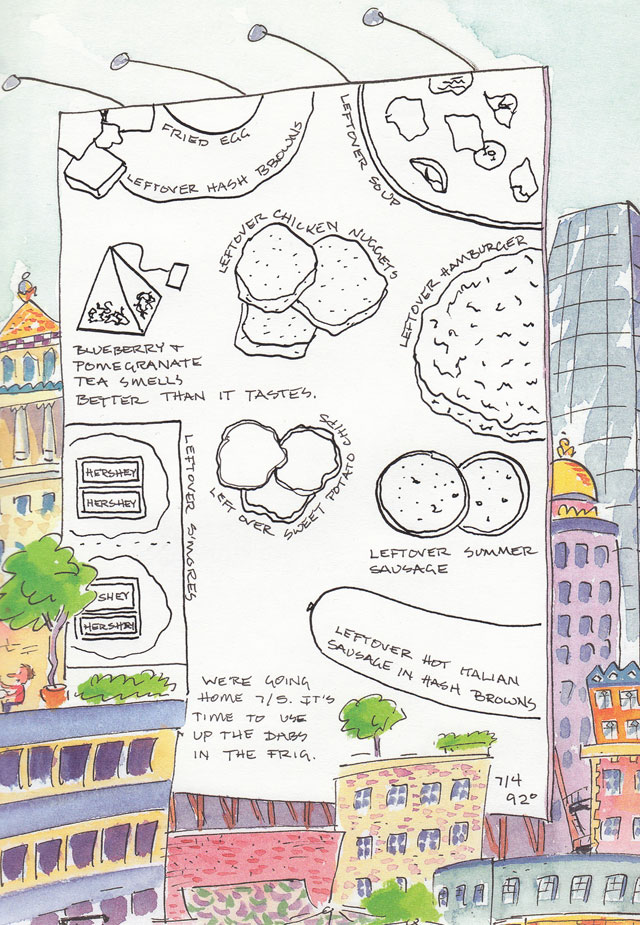 FRIED EGG
LEFTOVER HASH BBROWNS
LEFTOVER SOUP
LEFTOVER CHICKEN NUGGETS
LEFTOVER HAMBURGER
BLUEBERRY +
POMEGRANATE
TEA SMELLS
BETTER THAN IT TASTES.
HERSHEY
HERSHEY
SHEY
HERSHEY
LEFTOVER S'MORES
LEFTOVER SWEET POTATO CHIPS
LEFTOVER SUMMER
SAUSAGE
LEFTOVER HOT ITALIAN
SAUSAGE IN HASH BROWNS
WE'RE GOING
HOME 7/5. IT'S
TIME TO USE
UP THE DABS
IN THE FRIG.
7/4
92°